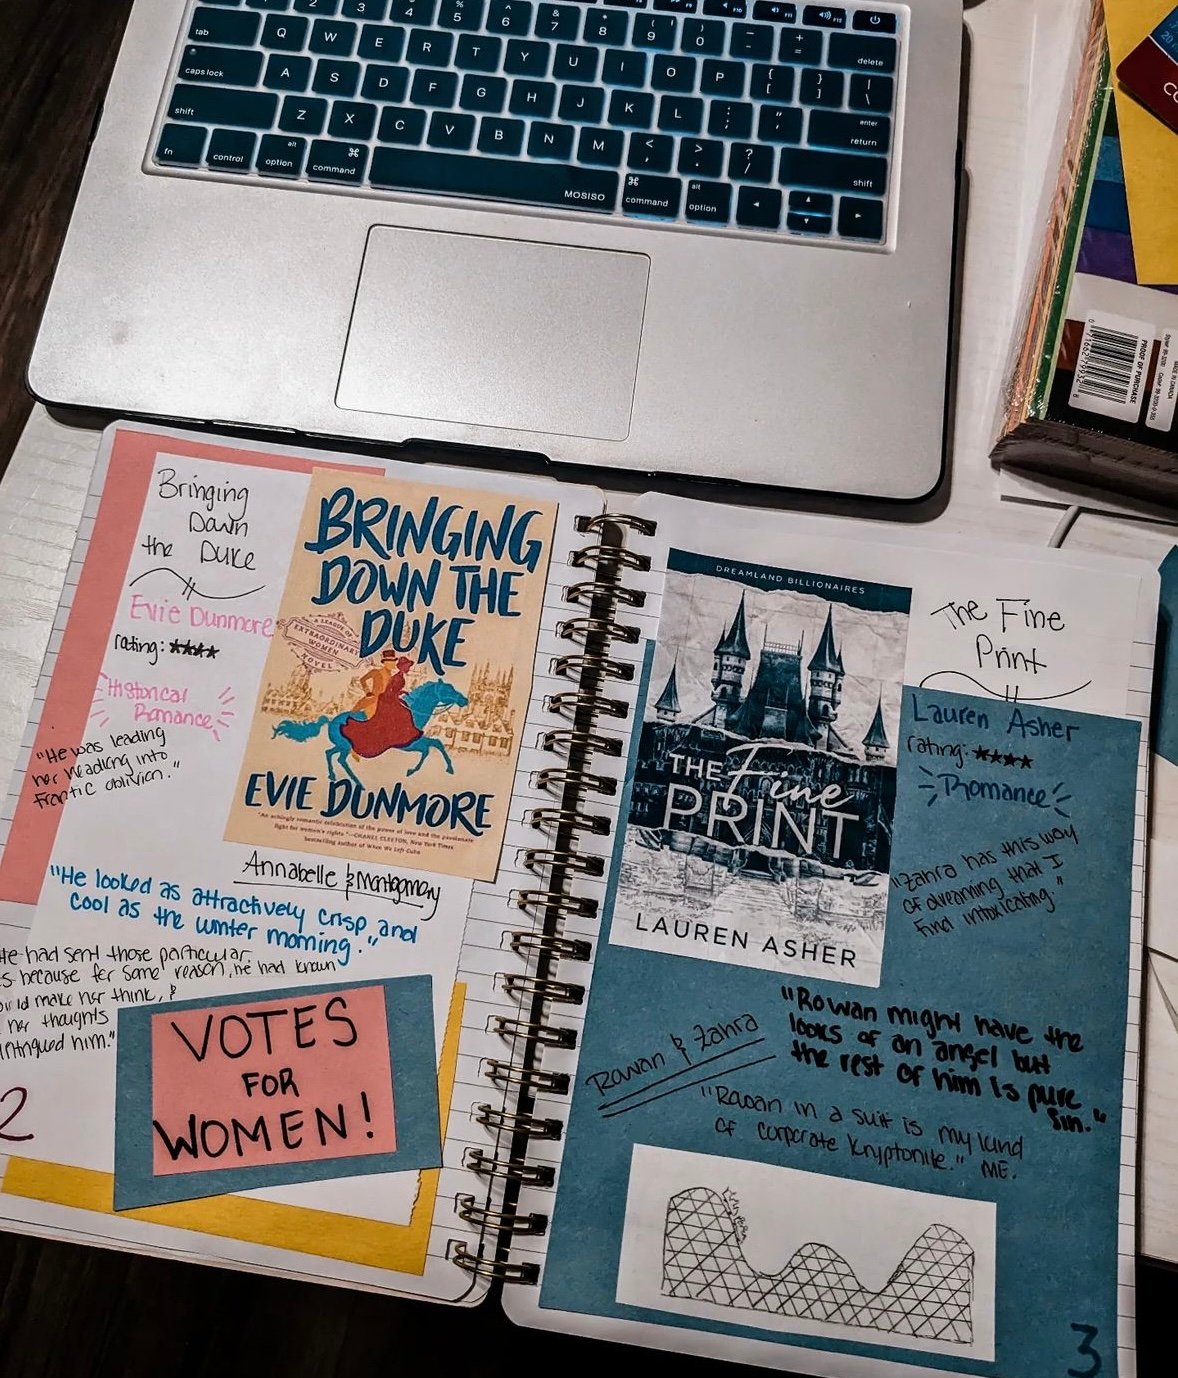 tab Q W E R T Y U I O P { [ } ] | \ delete
caps lock A S D F G H J K L : ; " ' enter return
shift Z X C V B N M < , > . ? / shift
fn control alt option ⌘ command MOSISO ⌘ command alt option
PROOF OF PURCHASE
MADE IN CANADA
Bringing
Down
the Duke
Evie Dunmore
rating: ★★★★
Historical
Romance
"He was leading
her headlong into
frantic oblivion."
BRINGING
DOWN THE
DUKE
A LEAGUE OF
EXTRAORDINARY
WOMEN
NOVEL
EVIE DUNMORE
"An achingly romantic celebration of the power of love and the passionate
fight for women's rights." —CHANEL CLEETON, New York Times
bestselling author of When We Left Cuba
Annabelle & Montgomery
"He looked as attractively crisp and
cool as the winter morning."
He had sent those particular
because for some reason, he had known
make her think, &
her thoughts
intrigued him."
VOTES
FOR
WOMEN!
2
DREAMLAND BILLIONAIRES
THE Fine
PRINT
LAUREN ASHER
The Fine
Print
Lauren Asher
rating: ★★★★
Romance
"Zahra has this way
of dreaming that I
find intoxicating."
"Rowan might have the
looks of an angel but
the rest of him is pure
sin."
Rowan & Zahra
"Rowan in a suit is my kind
of corporate kryptonite." ME.
3